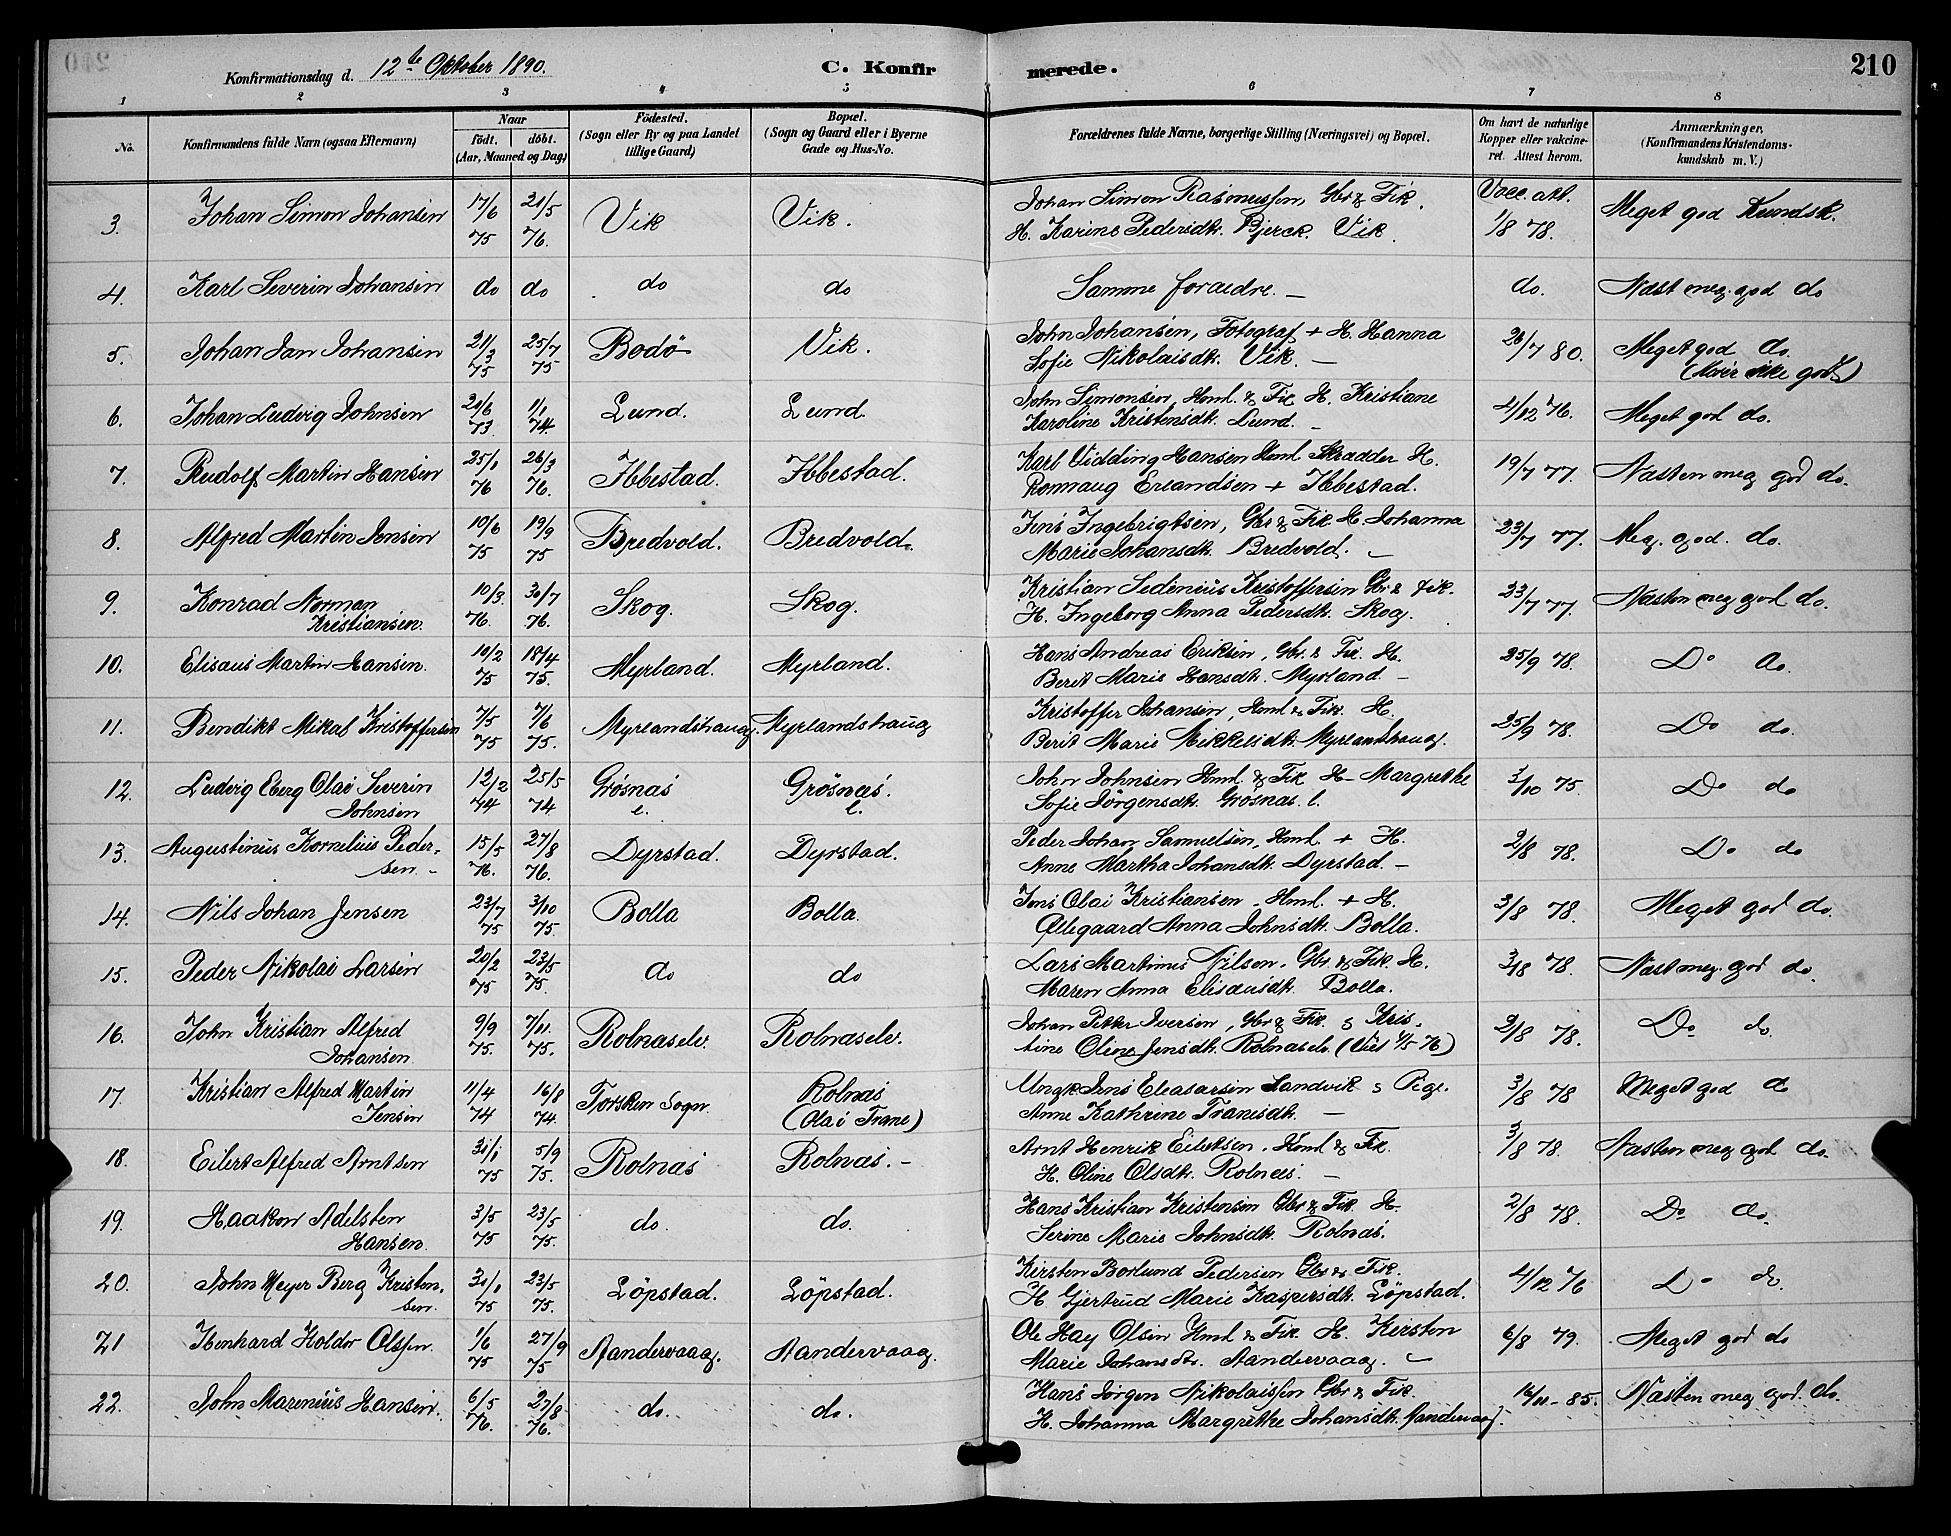 Konfirmationsdag d. 12te Oktober 1890. C. Konfirmerede. 210
1 2 3 4 5 6 7 8
No. Konfirmandens fulde Navn (ogsaa Efternavn) Naar födt. döbt. (Aar, Maaned og Dag) Födested. (Sogn eller By og paa Landet tillige Gaard) Bopæl. (Sogn og Gaard eller i Byerne Gade og Hus-No. Forældrenes fulde Navne, borgerlige Stilling (Næringsvei) og Bopæl. Om havt de naturlige Kopper eller vakcineret. Attest herom. Anmærkninger. (Konfirmandens Kristendomskundskab m. V.)
3. Johan Simon Johansen 17/6 75 21/5 76. Vik Vik. Johan Simon Rasmussen, Gbr & Fik.
H. Karine Pedersdt. Bjerck. Vik. Vacc. att. 1/8 78. Meget god Kundsk.
4. Karl Severin Johansen do do do do Samme foraeldre. — do. Næst meg. god do
5. Johan Jan Johansen 21/3 75 25/7 75 Bodö Vik. John Johansen, Fotograf + H. Hanna
Sofie Nikolaisdt. Vik. — 26/7 80. Meget god do.
6. Johan Ludvig Johnsen 20/6 73. 1/1 74. Lund. Lund. John Simonsen, Hml. & Fik H. Kristiane
Karoline Kristensdt. Lund. – 4/12 76. Meget god do.
7. Rudolf Martin Hansen 25/1 76 26/3 76. Ibbestad. Ibbestad. Karl Vidding Hansen Hml Skradder H.
Ronnaug Erlandsen + Ibbestad. 19/7 77. Næsten meg god do.
8. Alfred Martin Jensen 10/6 75 19/9 75 Bredvold. Bredvold. Jens Ingebrigtsen, Gbr & Fik H. Johanna
Marie Johansdt. Bredvold. – 23/7 77. Meg. god. do.
9. Konrad Norman
Kristiansen. 10/3. 76. 30/7 76. Skog. Skog. Kristian Sedenius Kristoffersen Gbr & Fik.
H. Ingeborg Anna Pedersdt. Skog. 23/7 77. Næsten meg god do.
10. Elisæus Martin Hansen. 10/2 75 18/4 75. Myrland. Myrland. Hans Andreas Eriksen, Gbr. & Fik. H.
Berit Marie Hansdt. Myrland – 25/9 78. Do do.
11. Bendikt Mikal Kristoffersen 7/5 75 7/6 75. Myrlandshaug. Myrlandshaug Kristoffer Johansen, Hml & Fik. H.
Berit Marie Mikkelsdt. Myrlandshaug. 25/9 78. Do do.
12. Ludvig Eberg Olai Severin
Johnsen 12/2 74 25/5 74. Grösnæs l. Grösnæs. l. John Johnsen Hml. & Fik H. Margrethe
Sofie Jörgensdt. Grösnæs. l. 3/10 75. Do do
13. Augustinus Kornelius Peder-
sen. – 15/5 76. 27/8 76. Dyrstad. Dyrstad. Peder Johan Samuelsen, Hml. + H.
Anne Martha Johansdt. Dyrstad. – 2/8 78. Do do
14. Nils Johan Jensen 23/7 75 3/10 75. Bolla Bolla. Jens Olai Kristiansen. Hml. + H.
Ollegaard Anna Johnsdt. Bolla. 3/8 78. Meget god do.
15. Peder Nikolai Larsen 20/2 75 23/5 75. do do Lars Martinus Nilsen. Gbr. & Fik. H.
Maren Anna Elisæusdt. Bolla. 3/8 78. Næst meg. god do.
16. John Kristian Alfred
Johansen. 9/9 75. 7/11. 75. Rolnæselv. Rolnæselv. Johan Petter Iversen, Gbr & Fik. & Kris-
tine Oline Jensdt. Rolnæselv. 2/8 78. Do do.
17. Kristian Alfred Martin
Jensen 11/4 74 16/8 74. Torsken Sogn. Rolnæs
(Olai Trane) Ungk. Jens Eleasarsen Sandvik & Pige.
Anne Kathrine Tranisdt. — 3/8 78 Meget god do
18. Eilert Alfred Arntsen 31/1 75 5/9 75. Rolnæs Rolnæs. – Arnt Henrik Eilertsen. Hml & Fik
H. Oline Olsdt. Rolnæs. — 3/8 78. Næsten meg god do.
19. Haakon Adelsten
Hansen. 3/5 75 23/5 75. do. do. Hans Kristian Kristensen Gbr & Fik. H.
Serine Marie Johnsdt. Rolnæs. 2/8 78. Do do.
20. John Meyer Berg Kristen-
sen. 30/1 75 23/5 75. Löpstad. Löpstad. Kirsten Borlund Pedersen Gbr & Fik.
H. Gjertrud Marie Kaspersdt. Löpstad. 4/12 76 Do do.
21 Henhard Holdor Olsen. 1/6 75 27/9 75 Aandervaag. Aandervaag. Ole Hay Olsen Hml & Fik. H. Kirsten
Marie Johansdtr. Aandervaag. – 6/8 79. Meget god do
22. John Marenius Hansen. 6/5 76. 27/8 76. do. do. Hans Jörgen Nikolaissen Gbr & Fik.
H. Johanna Margrethe Johansdt. Aandervaag. 16/11 – 85. Næsten meg god. do.